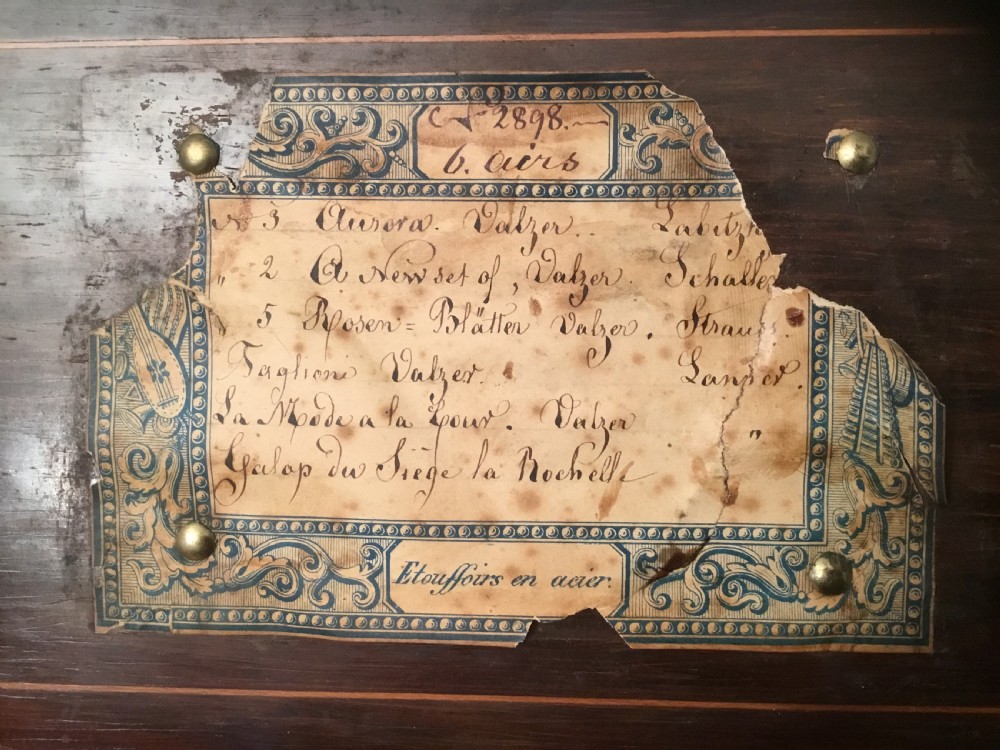 № 2898.
6. airs
№ 3 Aurora. Valzer.. Labitzk
" 2 A New set of, Valzer. Schalle
5 Rosen= Blätter Valzer. Strauss.
Taglioni Valzer. Lanner.
La Mode a la Cour. Valzer "
Galop du Siège la Rochelle
Etouffoirs en acier.